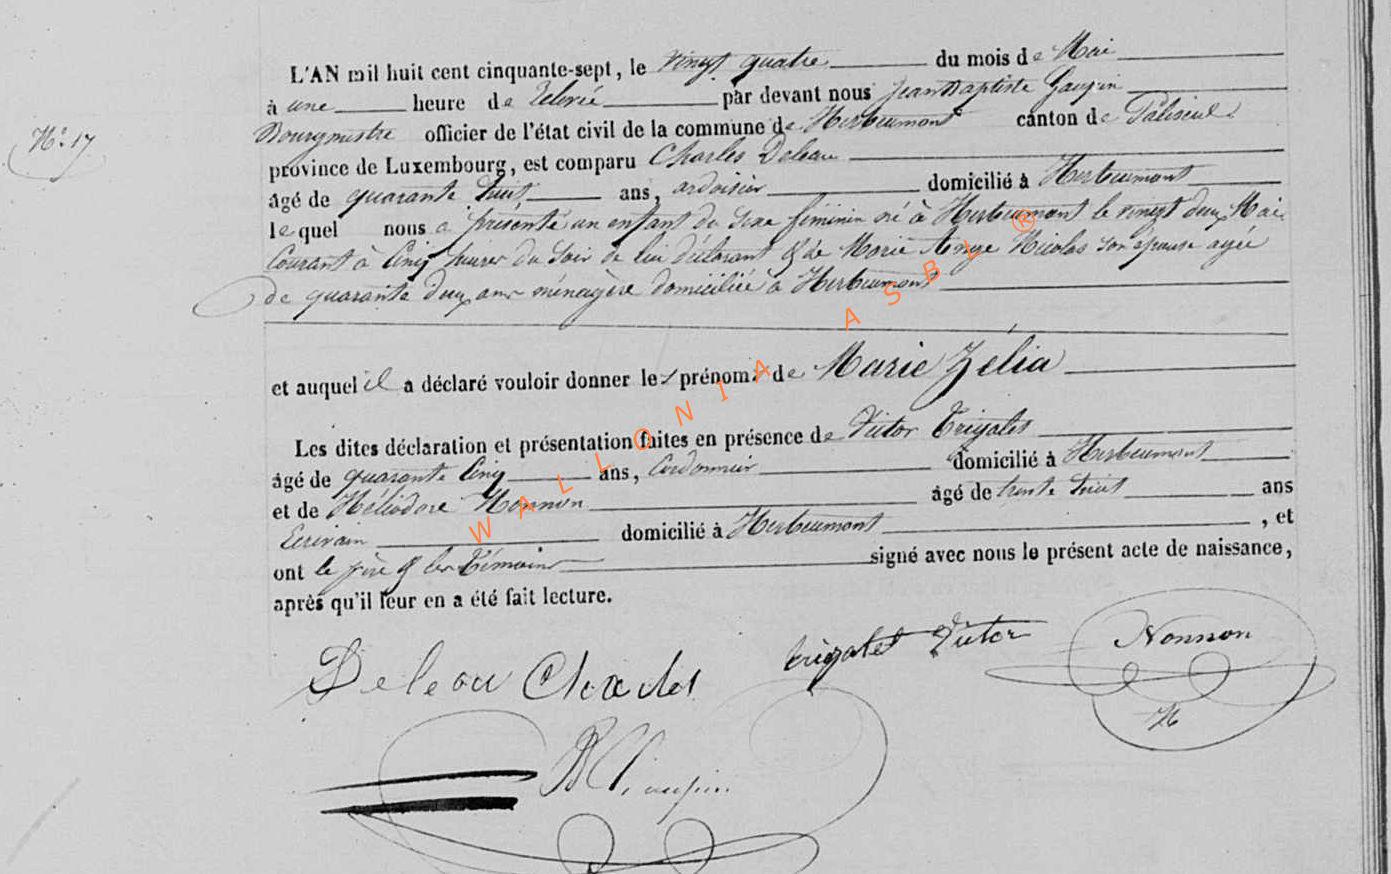 L'AN mil huit cent cinquante-sept, le vingt quatre du mois de Mai
à une heure de relevée par devant nous Jean Baptiste Gaupin
Bourgmestre officier de l'état civil de la commune de Herbeumont canton de Paliseul
N° 17
province de Luxembourg, est comparu Charles Deleau
âgé de quarante huit ans, ardoisier domicilié à Herbeumont
lequel nous a présenté un enfant du sexe féminin né à Herbeumont le vingt deux Mai
Courant à Cinq heures du soir de lui déclarant & de Marie Nicolas son épouse agée
de quarante deux ans ménagère domiciliée à Herbeumont
et auquel il a déclaré vouloir donner les prénoms de Marie Zélia
Les dites déclaration et présentation faites en présence de Victor Trigalet
âgé de quarante Cinq ans, Cordonnier domicilié à Herbeumont
et de Héliodore Nonnon âgé de trente huit ans
Ecrivain domicilié à Herbeumont, et
ont le père & les Témoins signé avec nous le présent acte de naissance,
après qu'il leur en a été fait lecture.
Deleau Charles
trigalet Victor
Nonnon
H
WALLONIA ASBL ®